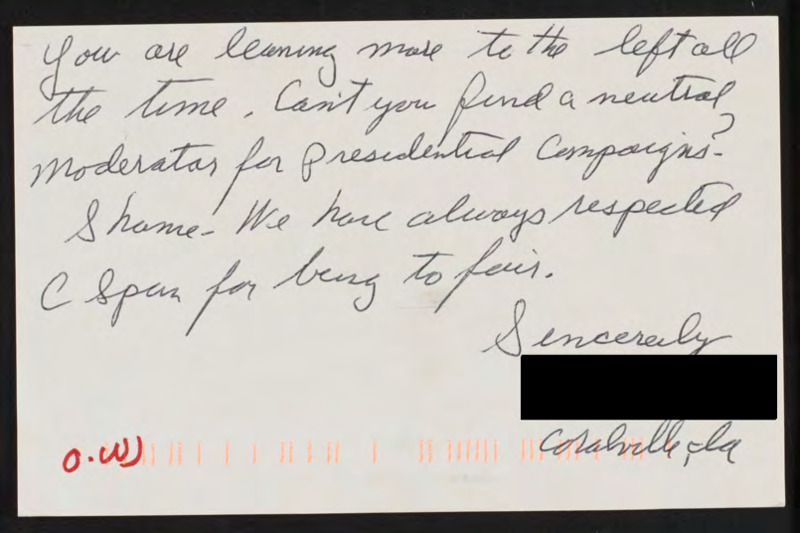 You are leaning more to the left all
the time. Can't you find a neutral
moderator for Presidential Campaigns-?
Shame- We have always respected
C Span for being to fair.
Sincerely
Coralville, Ia
O.W)